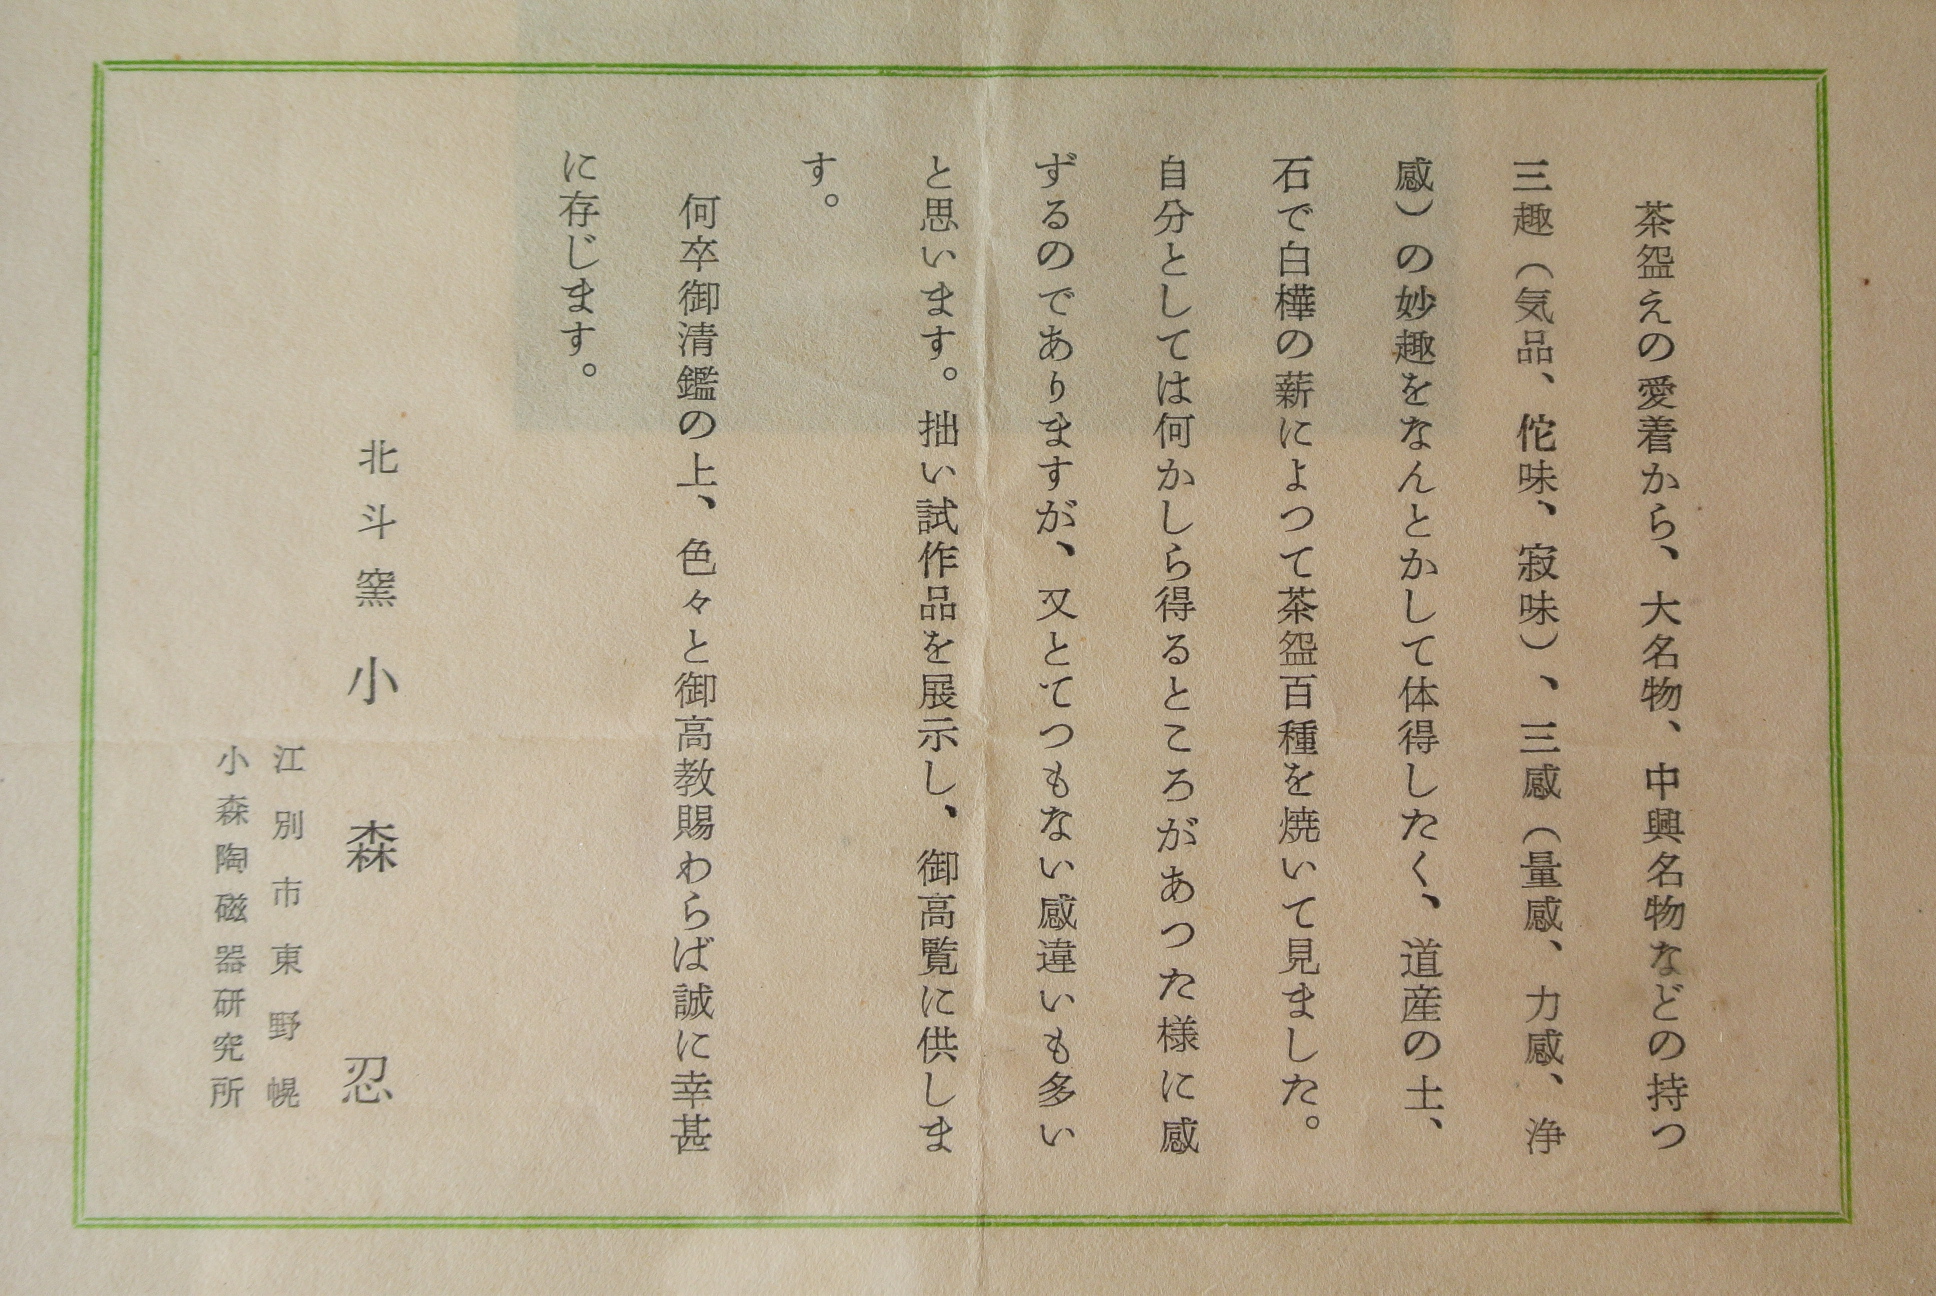 茶盌えの愛着から、大名物、中興名物などの持つ
三趣（気品、佗味、寂味）、三感（量感、力感、浄
感）の妙趣をなんとかして体得したく、道産の土、
石で白樺の薪によつて茶盌百種を焼いて見ました。
自分としては何かしら得るところがあつた様に感
ずるのでありますが、又とてつもない感違いも多い
と思います。拙い試作品を展示し、御高覧に供しま
す。
何卒御清鑑の上、色々と御高教賜わらば誠に幸甚
に存じます。
北斗窯 小森忍
江別市東野幌
小森陶磁器研究所